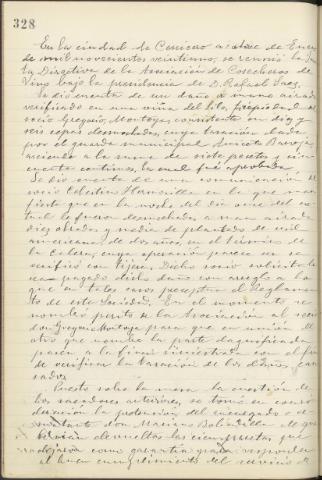 328
En la ciudad de Cenicero a doce de Enero
de mil novecientos veintiuno, se reunió la Jun
ta Directiva de la Asociación de Cosecheros de
Vino bajo la presidencia de D. Rafael
Se dió cuenta de un daño a mano airada
verificado en una viña del propiedad del
socio Gregorio Montoya, consistente en diez y
seis cepas desmochadas, cuya tasación dada
por el guarda municipal Aniceto
asciende a la suma de siete pesetas y cin
cuenta centimos, la cual fué aprobada.
Se dió cuenta de una comunicación del
socio Celestino en la que mani
fiesta que en la noche del día once del ac
tual le fueron desmochadas a mano airada
diez obradas y media de plantado de vid
americana, de dos años, en el término de
la cuya operación parece ser se
verificó con tijera. Dicho socio solicita le
sea pagado dicho daño con arreglo a lo
que en tales casos preceptua el Reglamen
to de esta Sociedad. En el momento se
nombró perito de la Asociación al socio
don Gregorio Montoya para que en unión del
otro que nombre la parte dagnificada
pasen a la finca siniestrada con el fin
de verificar la tasación de los daños cau
sados.
Puesto sobre la mesa la cuestión de
los anteriores, se tomó en consi
deración la petición del encargado o
don Mariano Bobadilla de que
le devueltas las cien pesetas que
dejaron como garantía para responder
al buen cumplimiento del servicio de